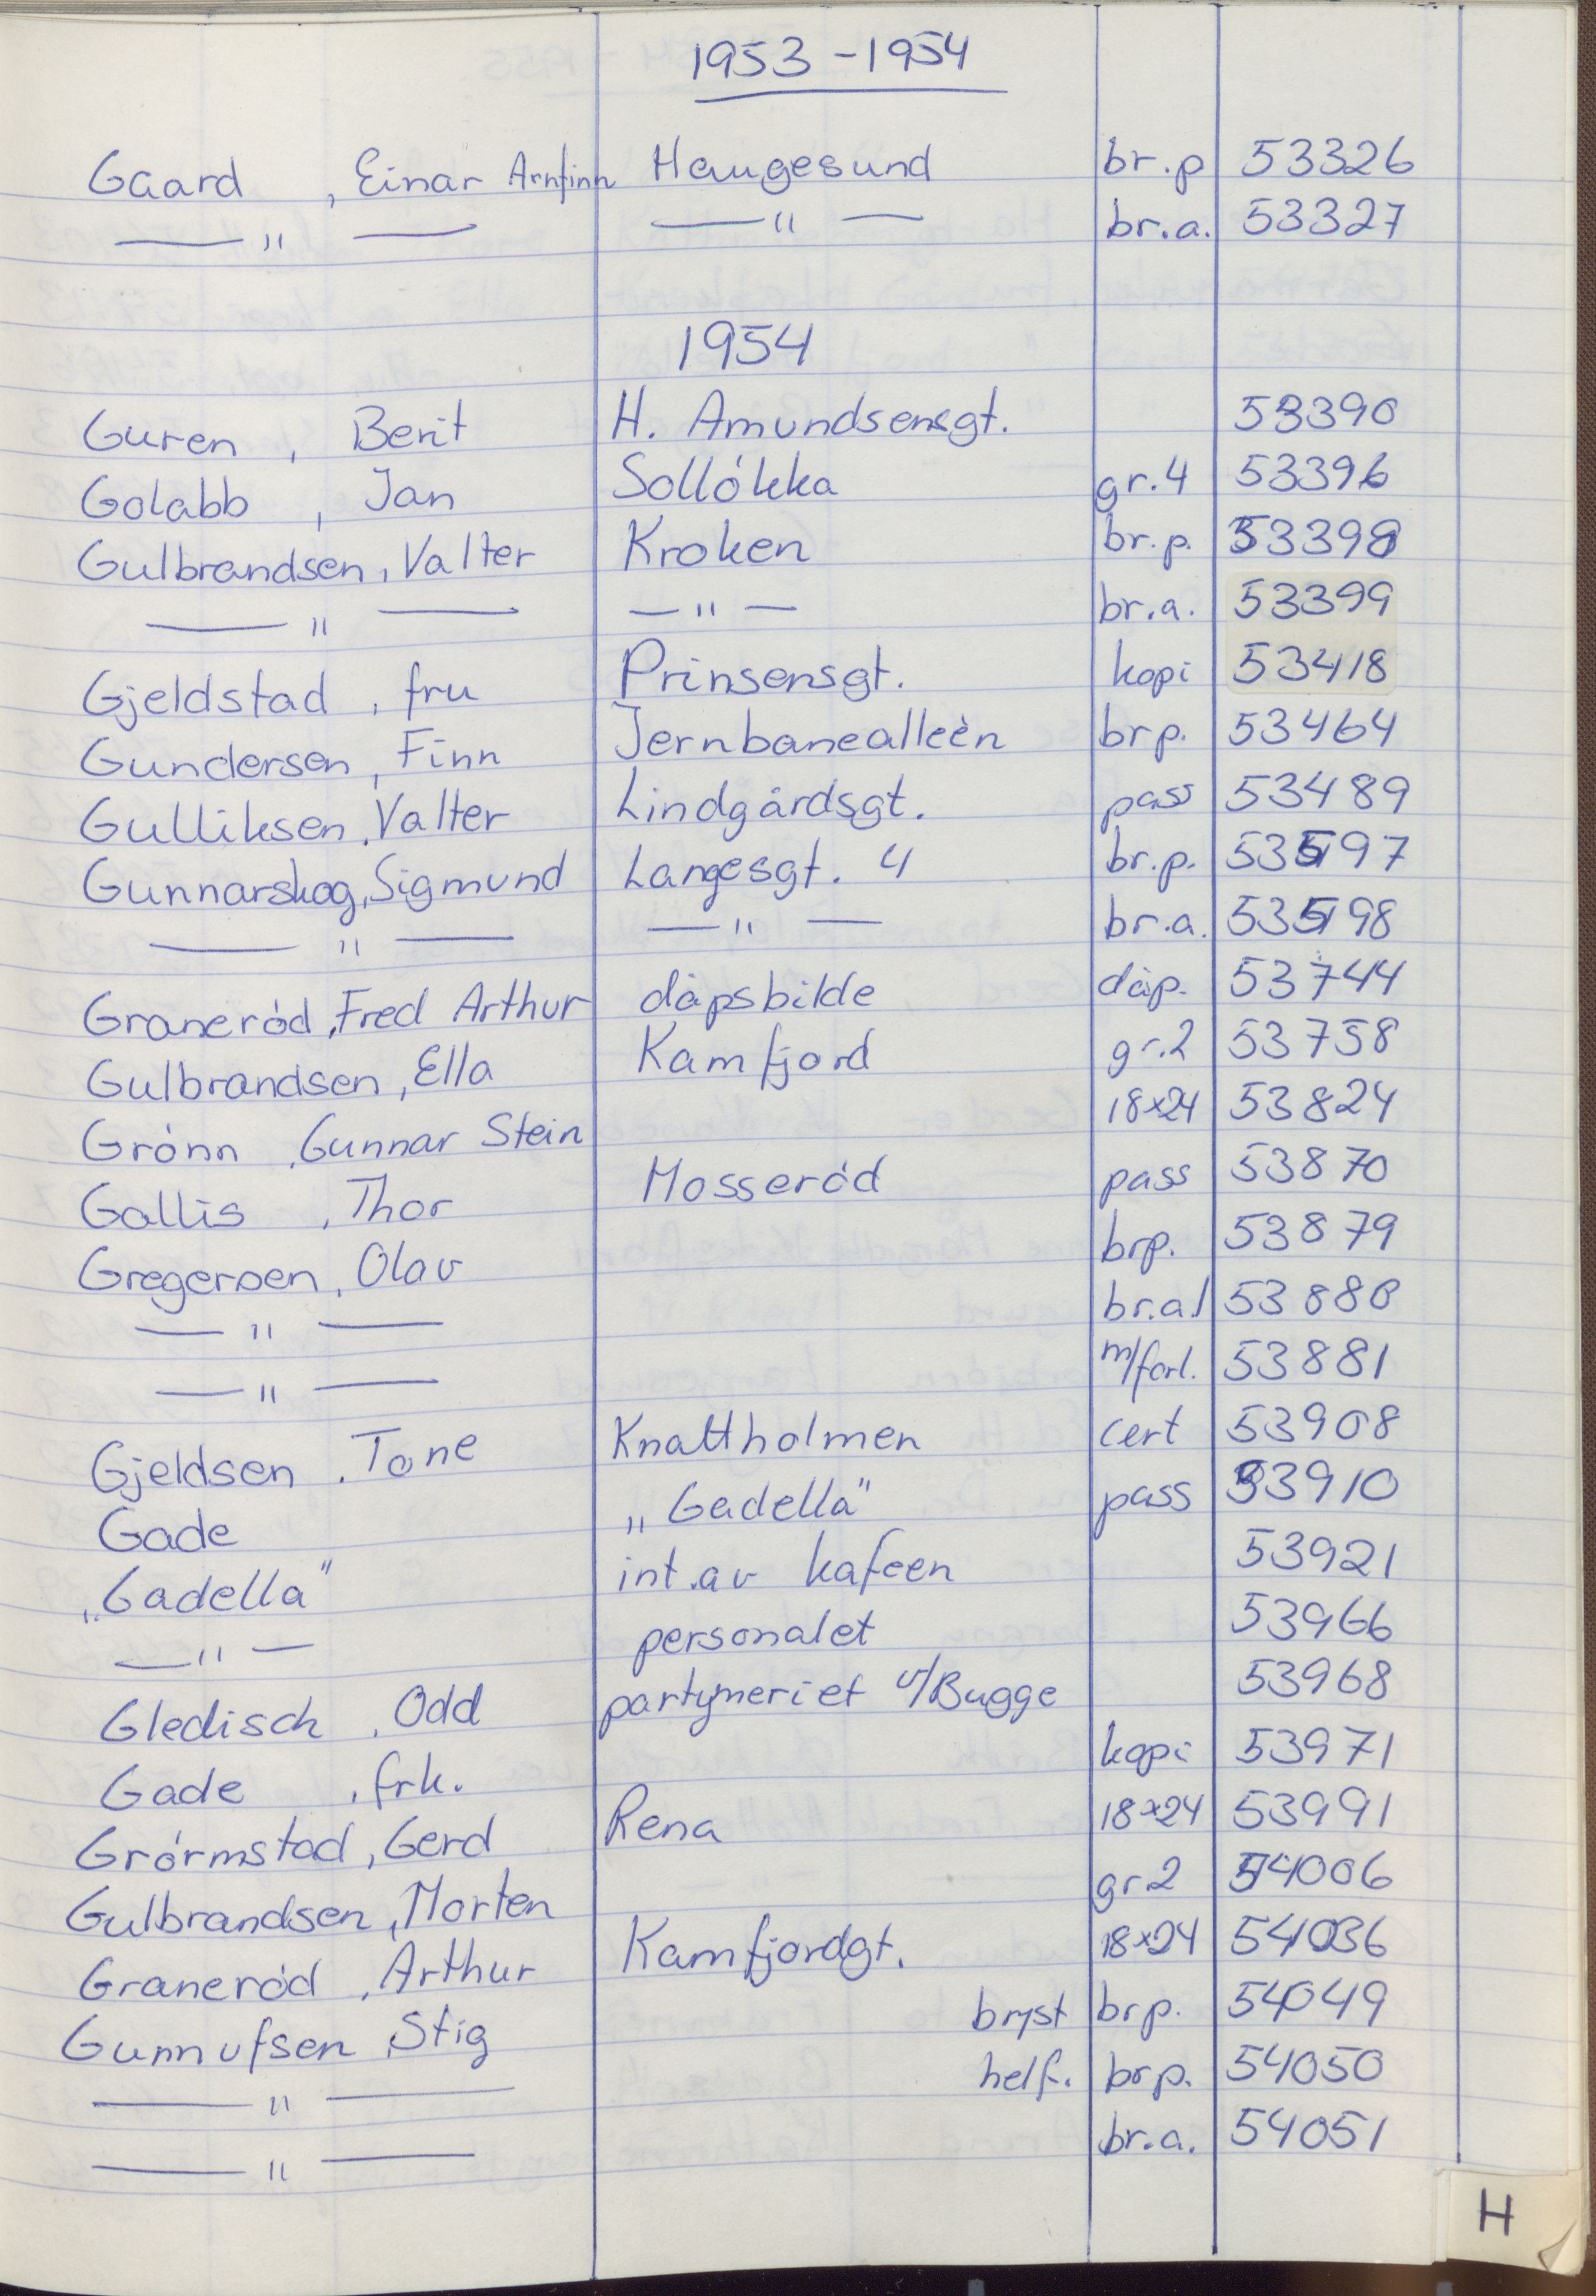 1953 - 1954
Gaard , Einar Arnfinn Haugesund br.p 53326
— " — — " — br.a. 53327
1954
Guren , Berit H. Amundsensgt. 53390
Golabb , Jan Sollökka gr.4 53396
Gulbrandsen, Valter Kroken br.p. 53398
— " — — " — br.a. 53399
Gjeldstad , fru Prinsensgt. kopi 53418
Gundersen , Finn Jernbanealleèn brp. 53464
Gulliksen , Valter Lindgårdsgt. pass 53489
Gunnarskog, Sigmund Langesgt. 4 br.p. 53597
— " — — " — br.a. 53598
Graneröd , Fred Arthur dåpsbilde dåp. 53744
Gulbrandsen , Ella Kamfjord gr.2 53758
Grönn , Gunnar Stein 18x24 53824
Gallis , Thor Mosseröd pass 53870
Gregersen , Olav brp. 53879
— " — br.a. 53880
— " — m/forl. 53881
Gjeldsen , Tone Knattholmen cert 53908
Gade „Gadella" pass 53910
„Gadella" int. av kafeen 53921
— " — personalet 53966
Gledisch , Odd partyneriet v/Bugge 53968
Gade , frk. kopi 53971
Grörmstad , Gerd Rena 18x24 53991
Gulbrandsen , Morten gr2 54006
Graneröd , Arthur Kamfjordgt. 18x24 54036
Gunnufsen , Stig bryst brp. 54049
— " — helf. brp. 54050
— " — br.a. 54051
H